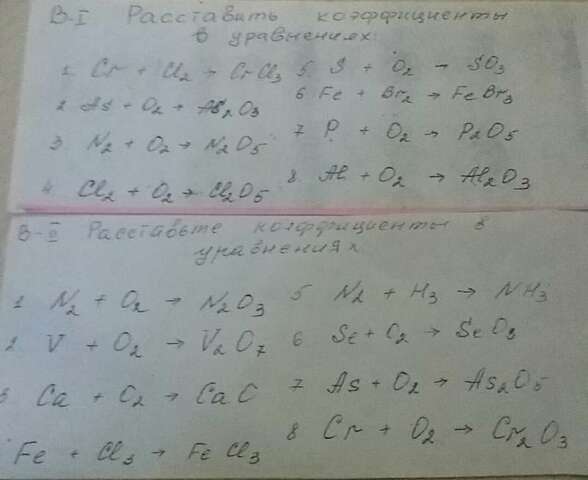 В-I Расставить коэффициенты
в уравнениях:
1. Cr + Cl2 → CrCl3
2. As + O2 → As2O3
3. N2 + O2 → N2O5
4. Cl2 + O2 → Cl2O5
5. S + O2 → SO3
6 Fe + Br2 → FeBr3
7 P + O2 → P2O5
8. Al + O2 → Al2O3
В-II Расставьте коэффициенты в
уравнениях
1 N2 + O2 → N2O3
2. V + O2 → V2O7
3 Ca + O2 → CaO
Fe + Cl3 → FeCl3
5 N2 + H3 → NH3
6 Se + O2 → SeO3
7 As + O2 → As2O5
8 Cr + O2 → Cr2O3